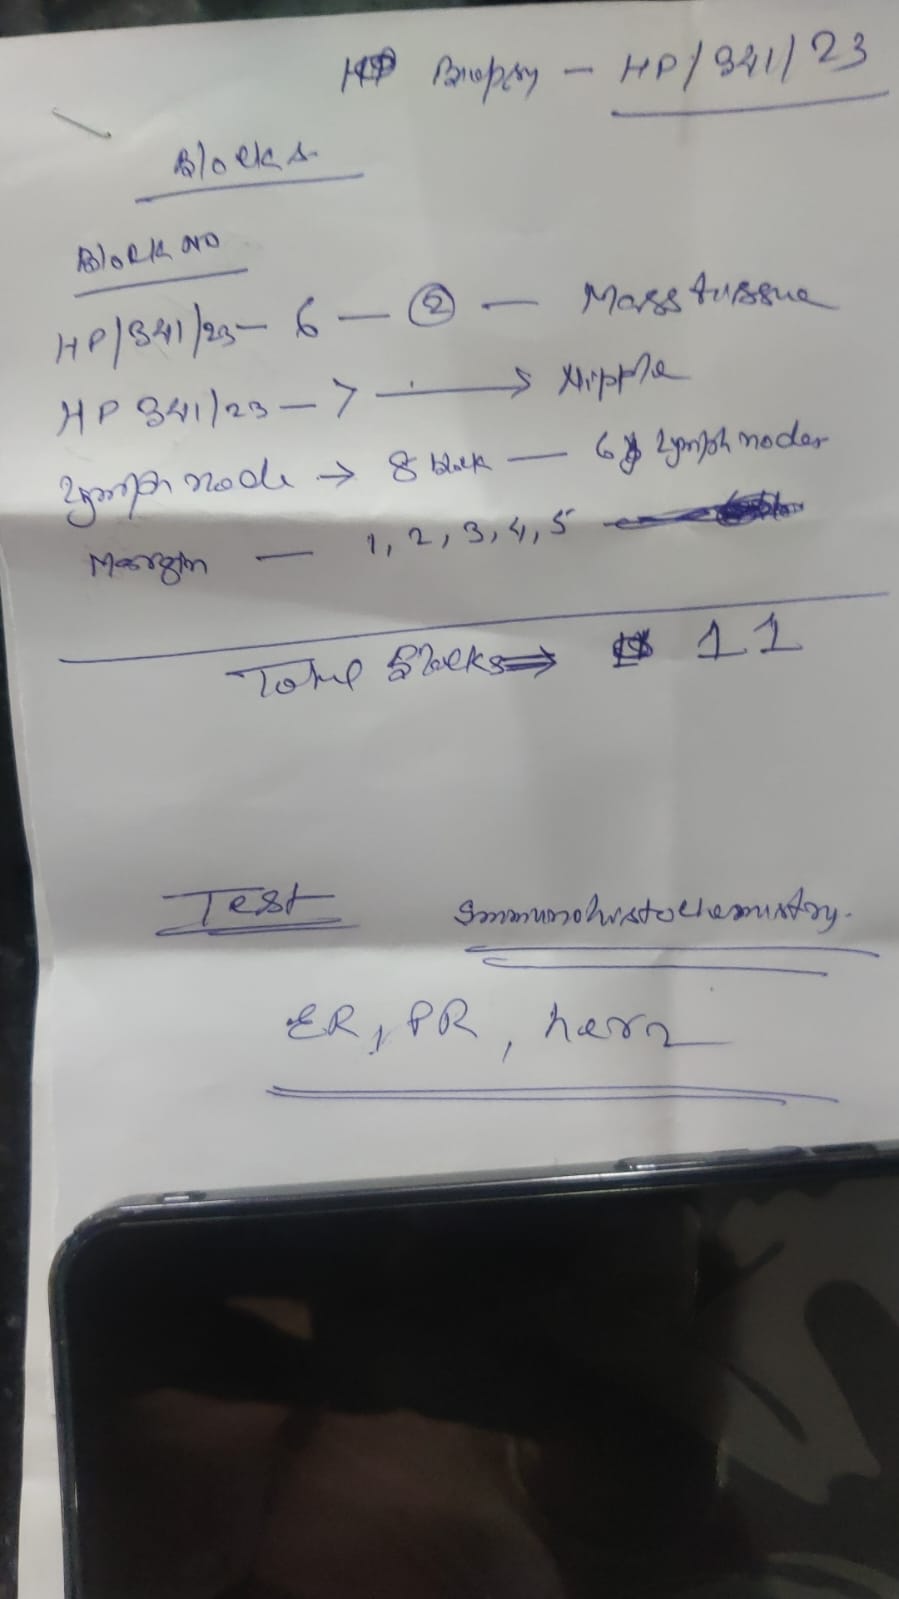 Biopsy - HP/341/23
Blocks
Block no
HP/341/23 - 6 - 2 - Mass tissue
HP 341/23 - 7 → Nipple
Lymph node → 8 block - 6 Lymph nodes
Margin - 1, 2, 3, 4, 5
Total Blocks ⇒ 11
Test Immunohistochemistry.
ER, PR, her2